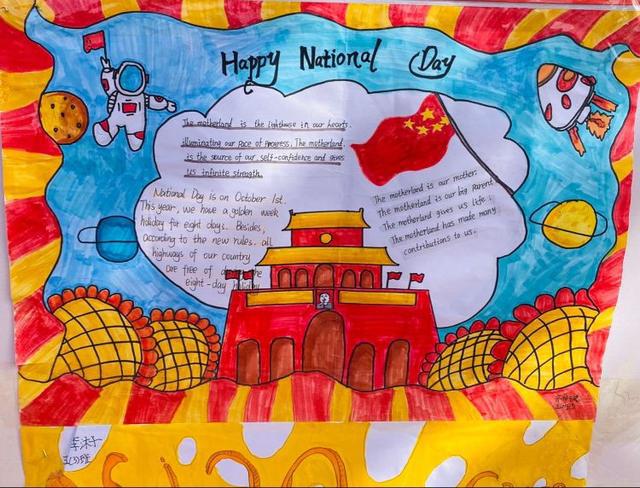 Happy National Day
The motherland is the lighthouse in our hearts,
illuminating our race of progress, The motherland
is the source of our self-confidence and gives
us infinite strength.
National Day is on October 1st.
This year, we have a golden week
holiday for eight days. Besides,
according to the new rules. all
highways of our country
are free of the
eight-day holiday
The motherland is our mother;
The motherland is our big parent
The motherland gives us life;
The motherland has made many
contributions to us.